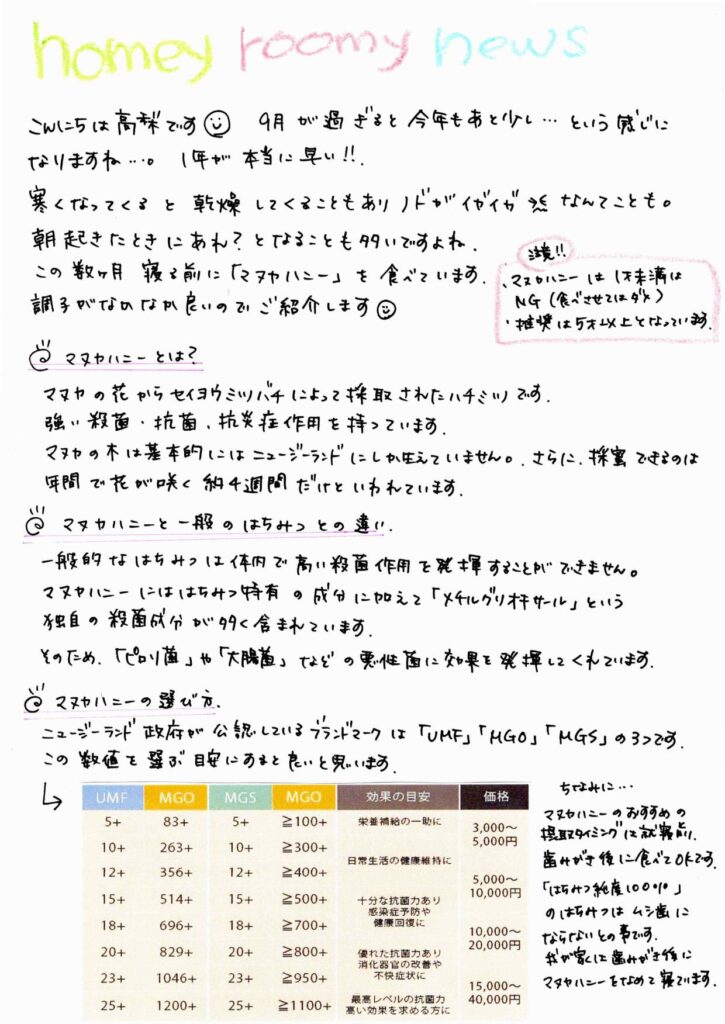 homey roomy news
こんにちは高梨です 9月が過ぎると今年もあと少し…という感じに
なりますね…。 1年が本当に早い!!.
寒くなってくると乾燥してくることもありノドがイガイガなんてことも。
朝起きたときにあれ?となることも多いですよね.
この数ヶ月 寝る前に「マヌカハニー」を食べています.
調子がなかなか良いのでご紹介します
注意!!
・マヌカハニーは1才未満は
NG(食べさせてはダメ)
・推奨は5才以上となっています.
マヌカハニーとは?
マヌカの花からセイヨウミツバチによって採取されたハチミツです.
強い殺菌・抗菌、抗炎症作用を持っています.
マヌカの木は基本的にはニュージーランドにしか生えていません。さらに、採蜜できるのは
年間で花が咲く約4週間だけといわれています.
マヌカハニーと一般のはちみつとの違い.
一般的なはちみつは体内で高い殺菌作用を発揮することができません。
マヌカハニーにははちみつ特有の成分に加えて「メチルグリオキサール」という
独自の殺菌成分が多く含まれています.
そのため、「ピロリ菌」や「大腸菌」などの悪性菌に効果を発揮してくれています.
マヌカハニーの選び方.
ニュージーランド政府が公認しているブランドマークは「UMF」「MGO」「MGS」の3つです.
この数値を選ぶ目安にすると良いと思います.
UMF MGO MGS MGO 効果の目安 価格
5+ 83+ 5+ ≧100+ 栄養補給の一助に
3,000〜
5,000円
10+ 263+ 10+ ≧300+
日常生活の健康維持に
12+ 356+ 12+ ≧400+
5,000〜
10,000円
15+ 514+ 15+ ≧500+
十分な抗菌力あり
感染症予防や
健康回復に
18+ 696+ 18+ ≧700+
10,000〜
20,000円
20+ 829+ 20+ ≧800+
優れた抗菌力あり
消化器官の改善や
不快症状に
23+ 1046+ 23+ ≧950+
15,000〜
40,000円
25+ 1200+ 25+ ≧1100+
最高レベルの抗菌力
高い効果を求める方に
ちなみに…
マヌカハニーのおすすめの
摂取タイミングは就寝前.
歯みがき後に食べてOKです.
「はちみつ純産100%」
のはちみつはムシ歯に
ならないとの事です.
我が家では歯みがき後に
マヌカハニーをなめて寝ています.